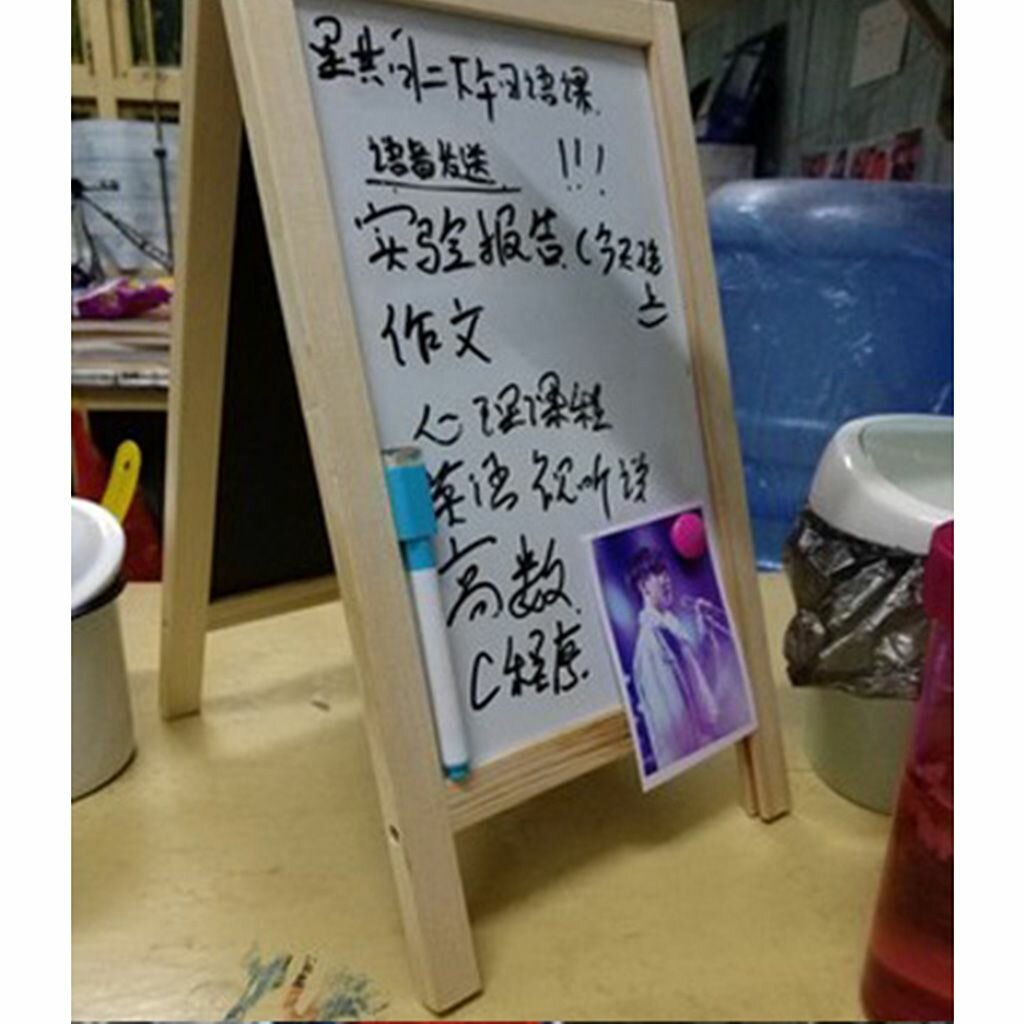 星期二下午日语课
语音发送 !!!
实验报告(今天晚
上)
作文
心理课程
英语视听说
高数
C程序